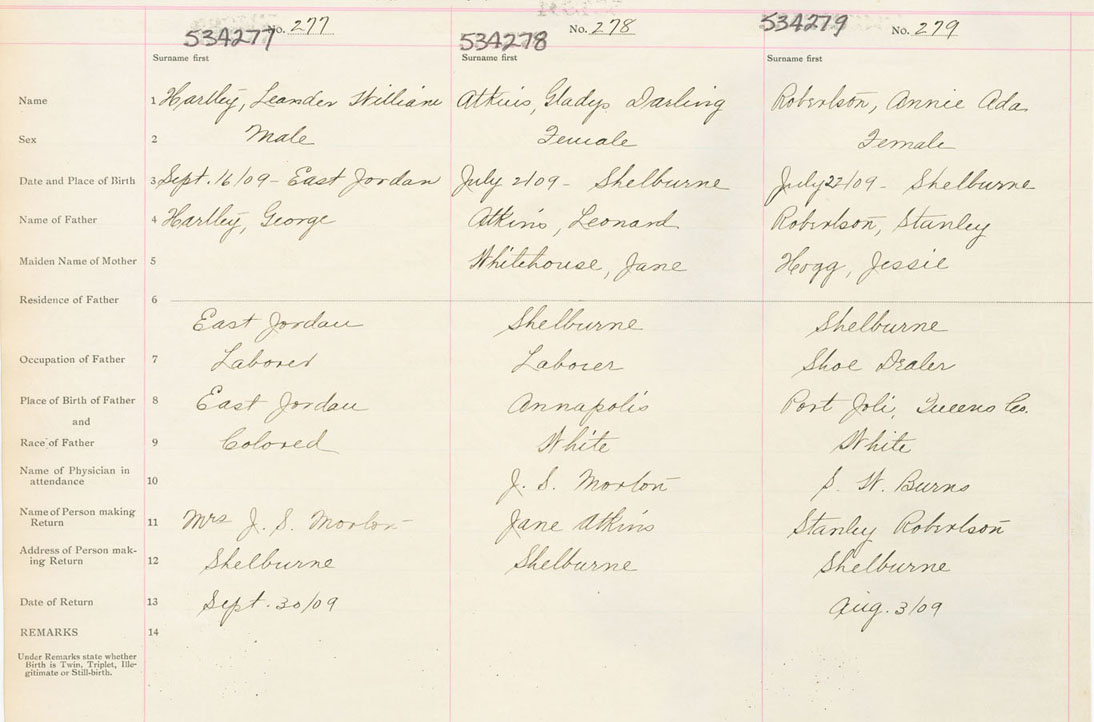 534277 No. 277 534278 No. 278 534279 No. 279
Surname first Surname first Surname first
Name 1 Hartley, Leander William Atkins, Gladys Darling Robertson, Annie Ada
Sex 2 Male Female Female
Date and Place of Birth 3 Sept. 16/09 - East Jordan July 2/09 - Shelburne July 22/09 - Shelburne
Name of Father 4 Hartley, George Atkins, Leonard Robertson, Stanley
Maiden Name of Mother 5 Whitehouse, Jane Hogg, Jessie
Residence of Father 6
East Jordan Shelburne Shelburne
Occupation of Father 7 Laborer Laborer Shoe Dealer
Place of Birth of Father 8 East Jordan Annapolis Port Joli, Queens Co.
and
Race of Father 9 Colored White White
Name of Physician in
attendance 10 J. S. Morton S. W. Burns
Name of Person making
Return 11 Mrs J. S. Morton Jane Atkins Stanley Robertson
Address of Person mak-
ing Return 12 Shelburne Shelburne Shelburne
Date of Return 13 Sept. 30/09 Aug. 3/09
REMARKS 14
Under Remarks state whether
Birth is Twin, Triplet, Ille-
gitimate or Still-birth.